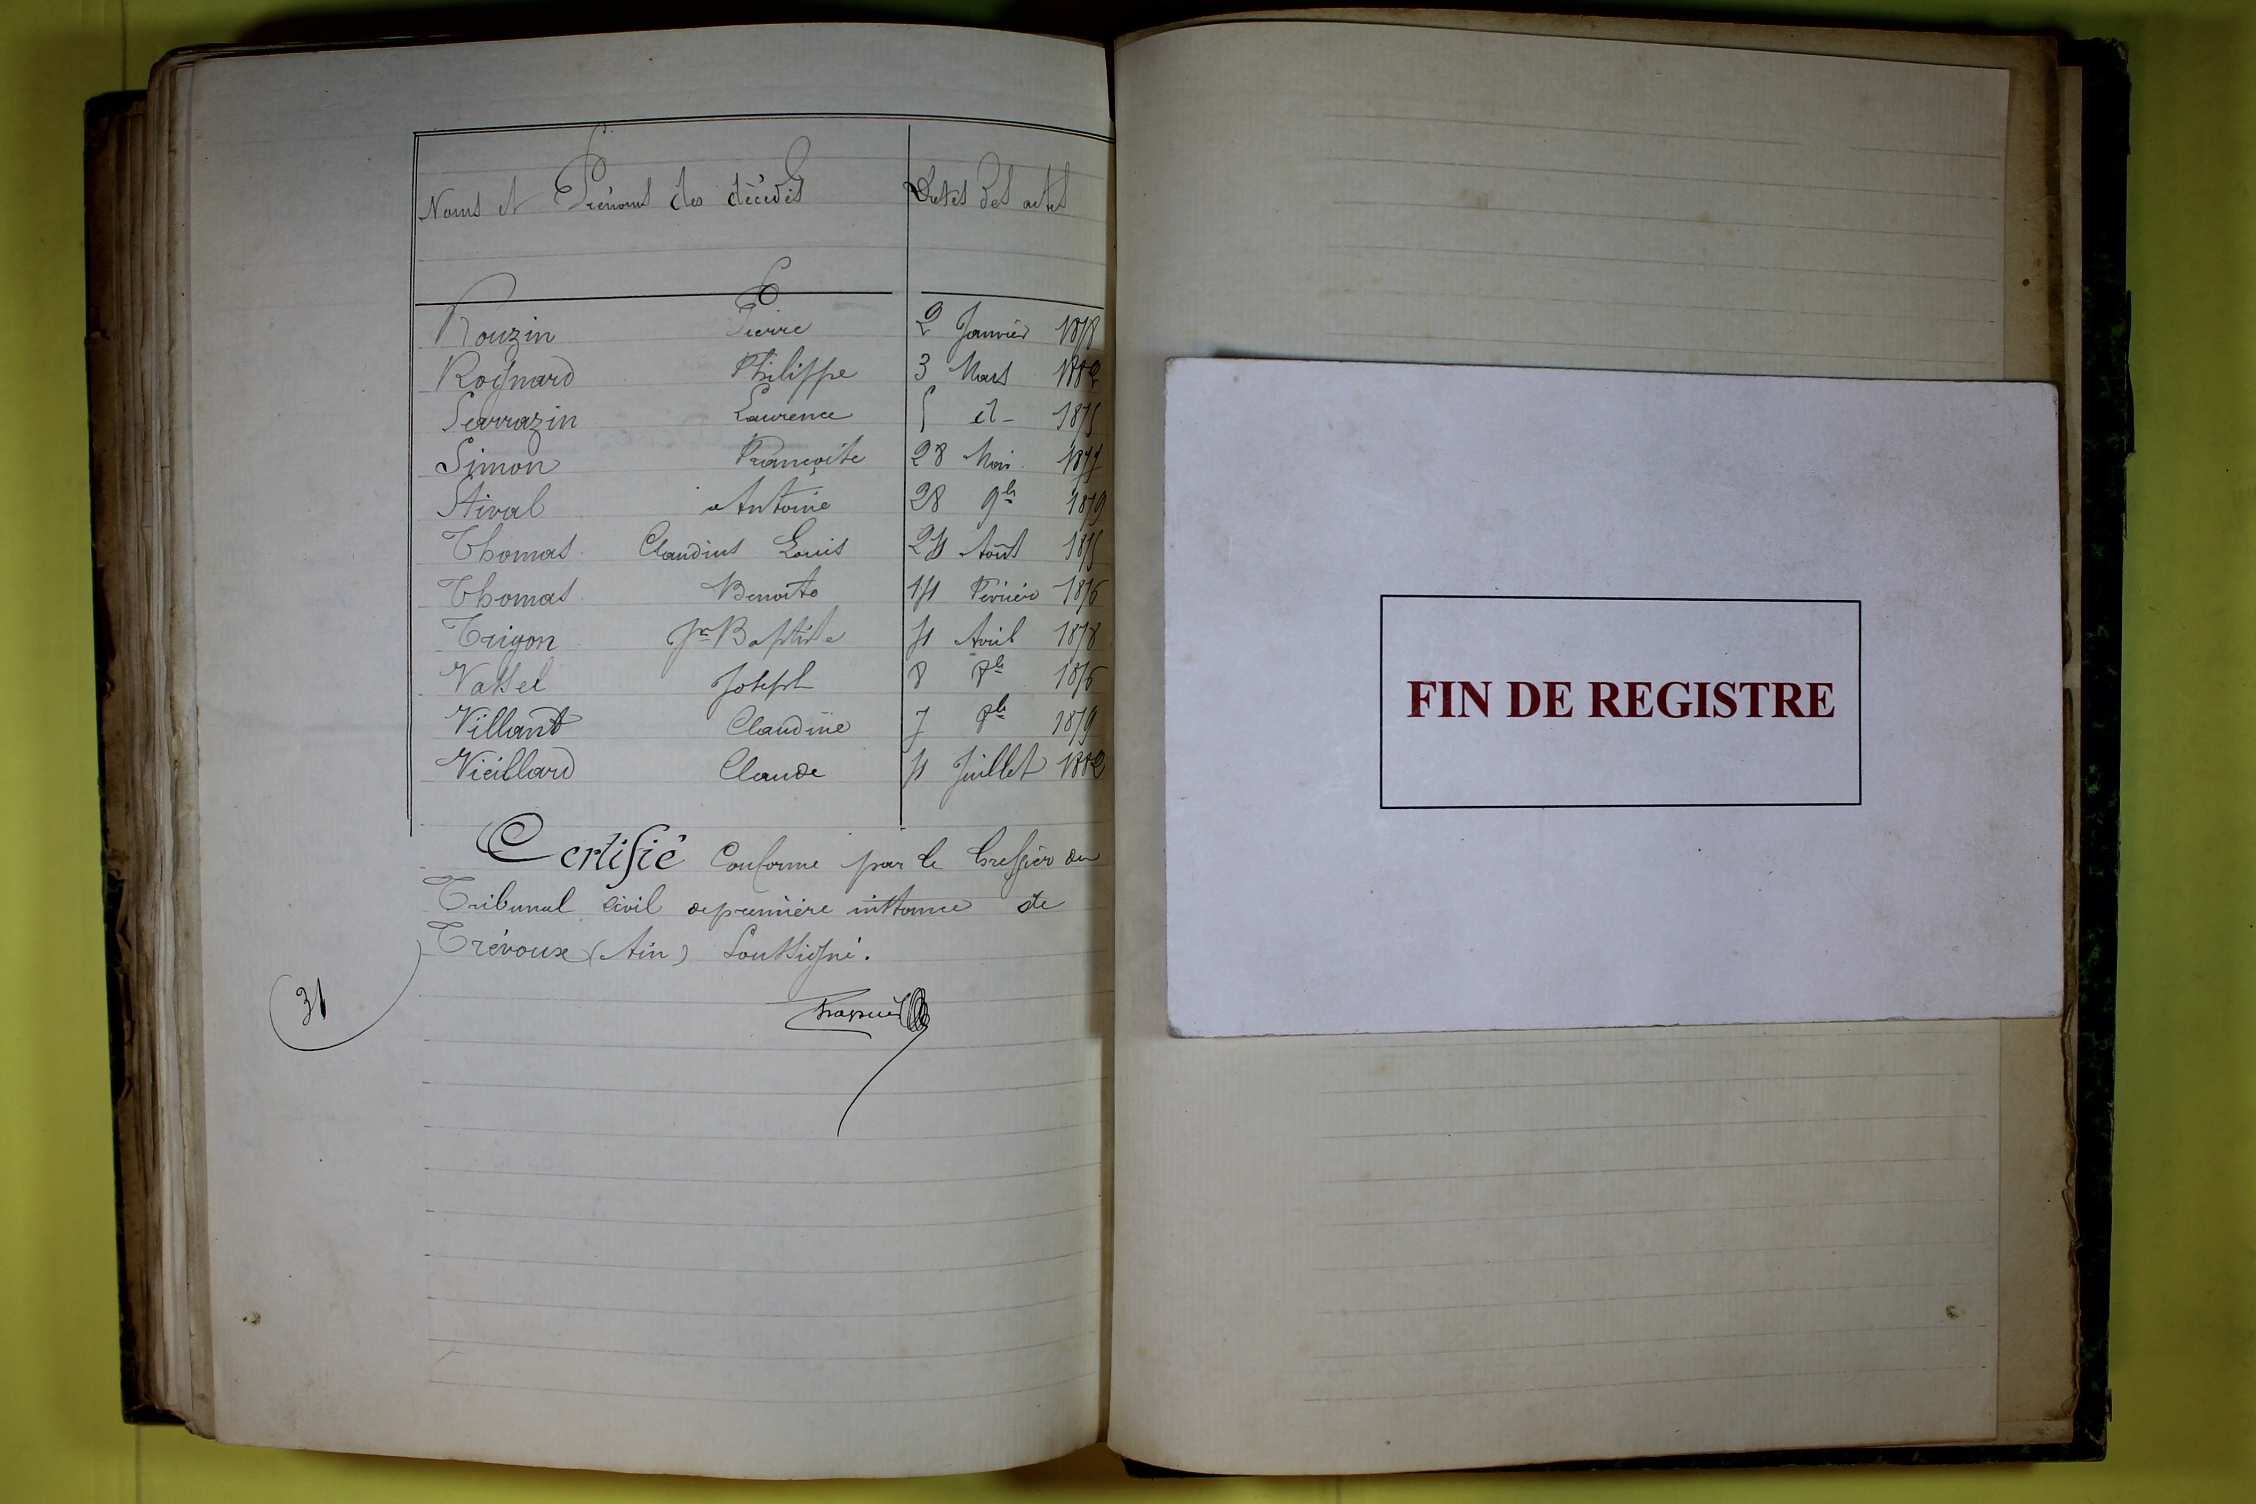 Noms et Prénoms des décédés Dates des actes
Rouzin Pierre 2 Janvier 1878
Rognard Philippe 3 Mars 1882
Serrazin Laurence 5 d- 1875
Simon Françoise 28 Mai 1877
Stival Antoine 28 9bre 1879
Thomas Claudius Louis 24 Août 1875
Thomas Benoite 14 Février 1876
Trigon Jn Baptiste 4 Avril 1878
Vassel Joseph 8 8bre 1876
Villand Claudine 7 8bre 1879
Vieillard Claude 4 Juillet 1882
Certifié Conforme par le Greffier du
Tribunal civil de première instance de
Trévoux (Ain) Soussigné.
31
FIN DE REGISTRE